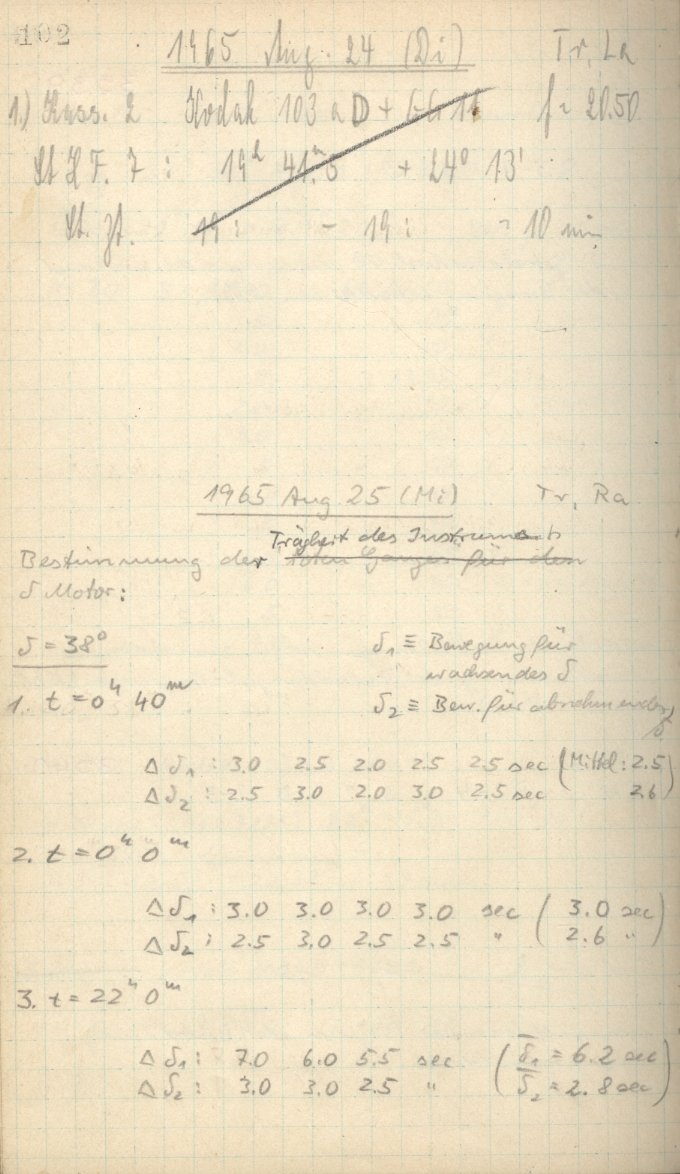 102
1965 Aug. 24 (Di) Tr, La
1.) Kass. 2 Kodak 103 a D + GG 11 f = 20.50
St H F. 7 : 19h 41.m5 + 24° 13'
St. Zt. 19 : – 19 : = 10 min
1965 Aug 25 (Mi) Tr, Ra
Trägheit des Instruments
Bestimmung der toten Ganges für den
δ Motor:
δ = 38° δ1 ≡ Bewegung für
wachsendes δ
1. t = 0h 40m δ2 ≡ Bew. für abnehmendes
δ
Δ δ1 : 3.0 2.5 2.0 2.5 2.5 sec (Mittel: 2.5
Δ δ2 : 2.5 3.0 2.0 3.0 2.5 sec 2.6)
2. t = 0h 0m
Δ δ1 : 3.0 3.0 3.0 3.0 sec ( 3.0 sec
Δ δ2 : 2.5 3.0 2.5 2.5 " 2.6 " )
3. t = 22h 0m
Δ δ1 : 7.0 6.0 5.5 sec ( δ̄1 = 6.2 sec
Δ δ2 : 3.0 3.0 2.5 " δ̄2 = 2.8 sec )